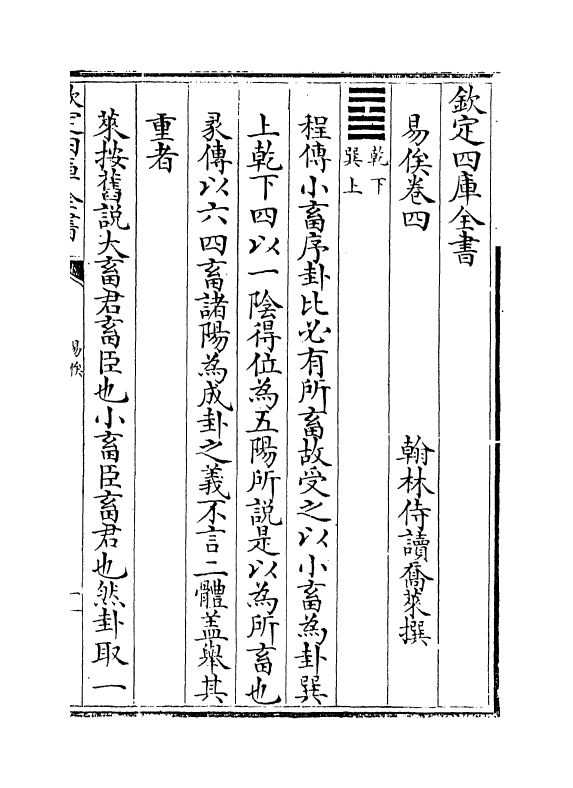 欽定四庫全書
易俟卷四
翰林侍讀喬萊撰
乾下
巽上
程傳小畜序卦比必有所畜故受之以小畜為卦巽
上乾下四以一陰得位為五陽所説是以為所畜也
彖傳以六四畜諸陽為成卦之義不言二體盖舉其
重者
萊按舊説大畜君畜臣也小畜臣畜君也然卦取一
欽定四庫全書
易俟
一